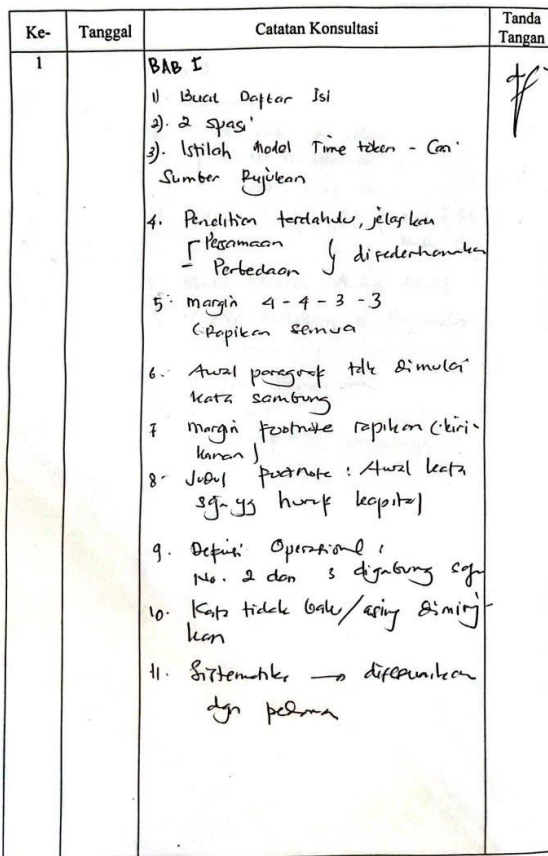 Ke-
Tanggal
Catatan Konsultasi
Tanda
Tangan
1
BAB I
1) Buat Daftar Isi
2). 2 spasi
3). Istilah Model Time token - Cari
Sumber Rujukan
4. Penelitian terdahulu, jelaskan
Persamaan
Perbedaan } disederhanakan
5. margin 4-4-3-3
(Rapikan semua
6. Awal paragraf tdk dimulai
kata sambung
7 margin footnote rapikan (kiri-
kanan)
8. Judul footnote : Awal kata
yg huruf kapital
9. Definisi Operasional :
No. 2 dan 3 digabung saja
10. Kata tidak baku/asing dimiring-
kan
11. Sistematika → disesuaikan
dgn pedoman